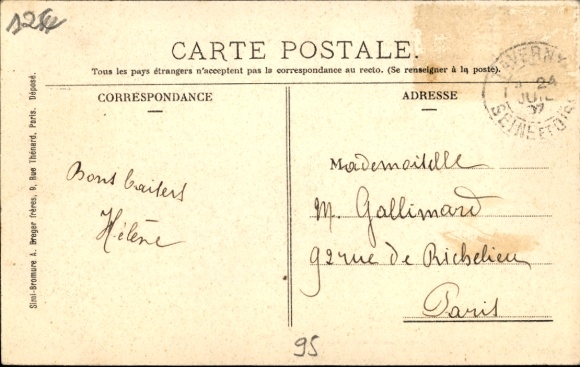 125
CARTE POSTALE.
Tous les pays étrangers n'acceptent pas la correspondance au recto. (Se renseigner à la poste).
CORRESPONDANCE
Bons baisers
Hélène
ADRESSE
Mademoiselle
M. Gallimard
92 rue de Richelieu
Paris
TAVERNY
24
JUIL
SEINE ET OISE
Simi-Bromure A. Breger frères, 9, Rue Thénard, Paris. Déposé.
95